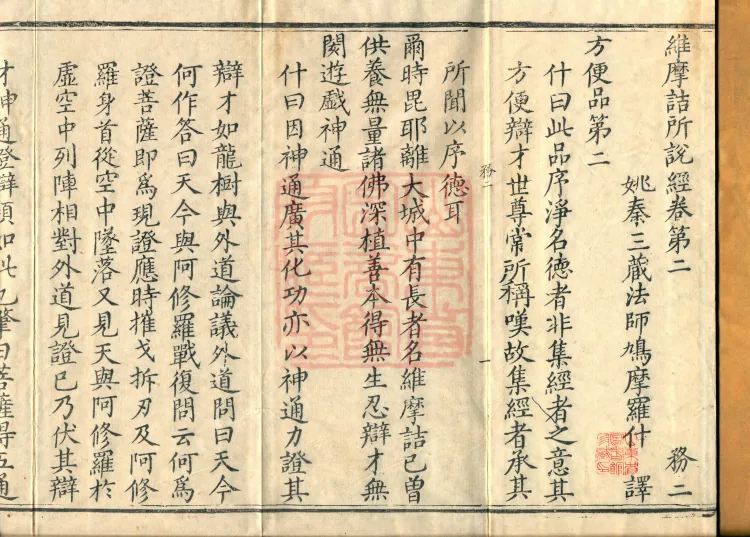 維摩詰所說經卷第二 務二
姚秦三藏法師鳩摩羅什 譯
方便品第二
什曰此品序淨名德者非集經者之意其
方便辯才世尊常所稱嘆故集經者承其
務二 一
所聞以序德耳
爾時毘耶離大城中有長者名維摩詰已曾
供養無量諸佛深植善本得無生忍辯才無
閡遊戲神通
什曰因神通廣其化功亦以神通力證其
辯才如龍樹與外道論議外道問曰天今
何作答曰天今與阿修羅戰復問云何爲
證菩薩即爲現證應時摧戈拆刃及阿修
羅身首從空中墜落又見天與阿修羅於
虛空中列陣相對外道見證已乃伏其辯
才神通證辯類如此也肇曰菩薩得五通